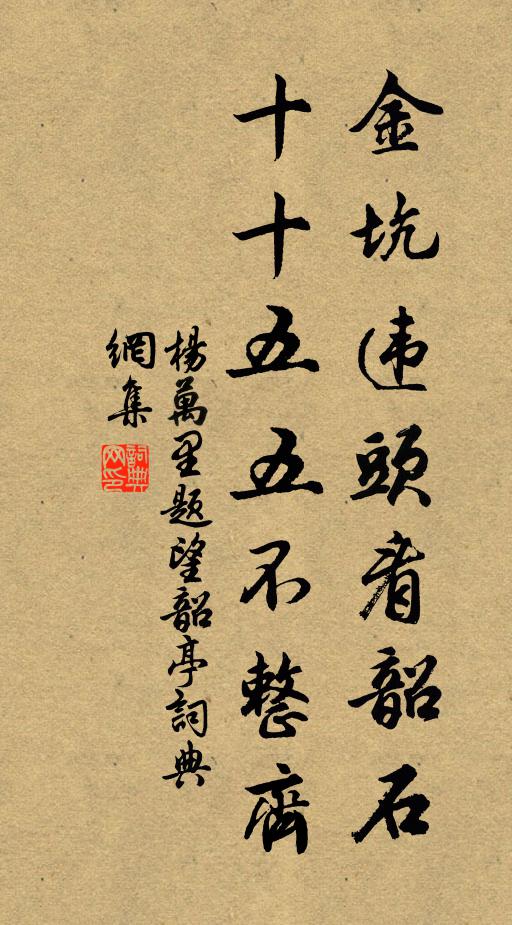 金坑违頭看韶石
十十五五不整齊
楊萬里题望韶亭詞典
網集
詞典網印